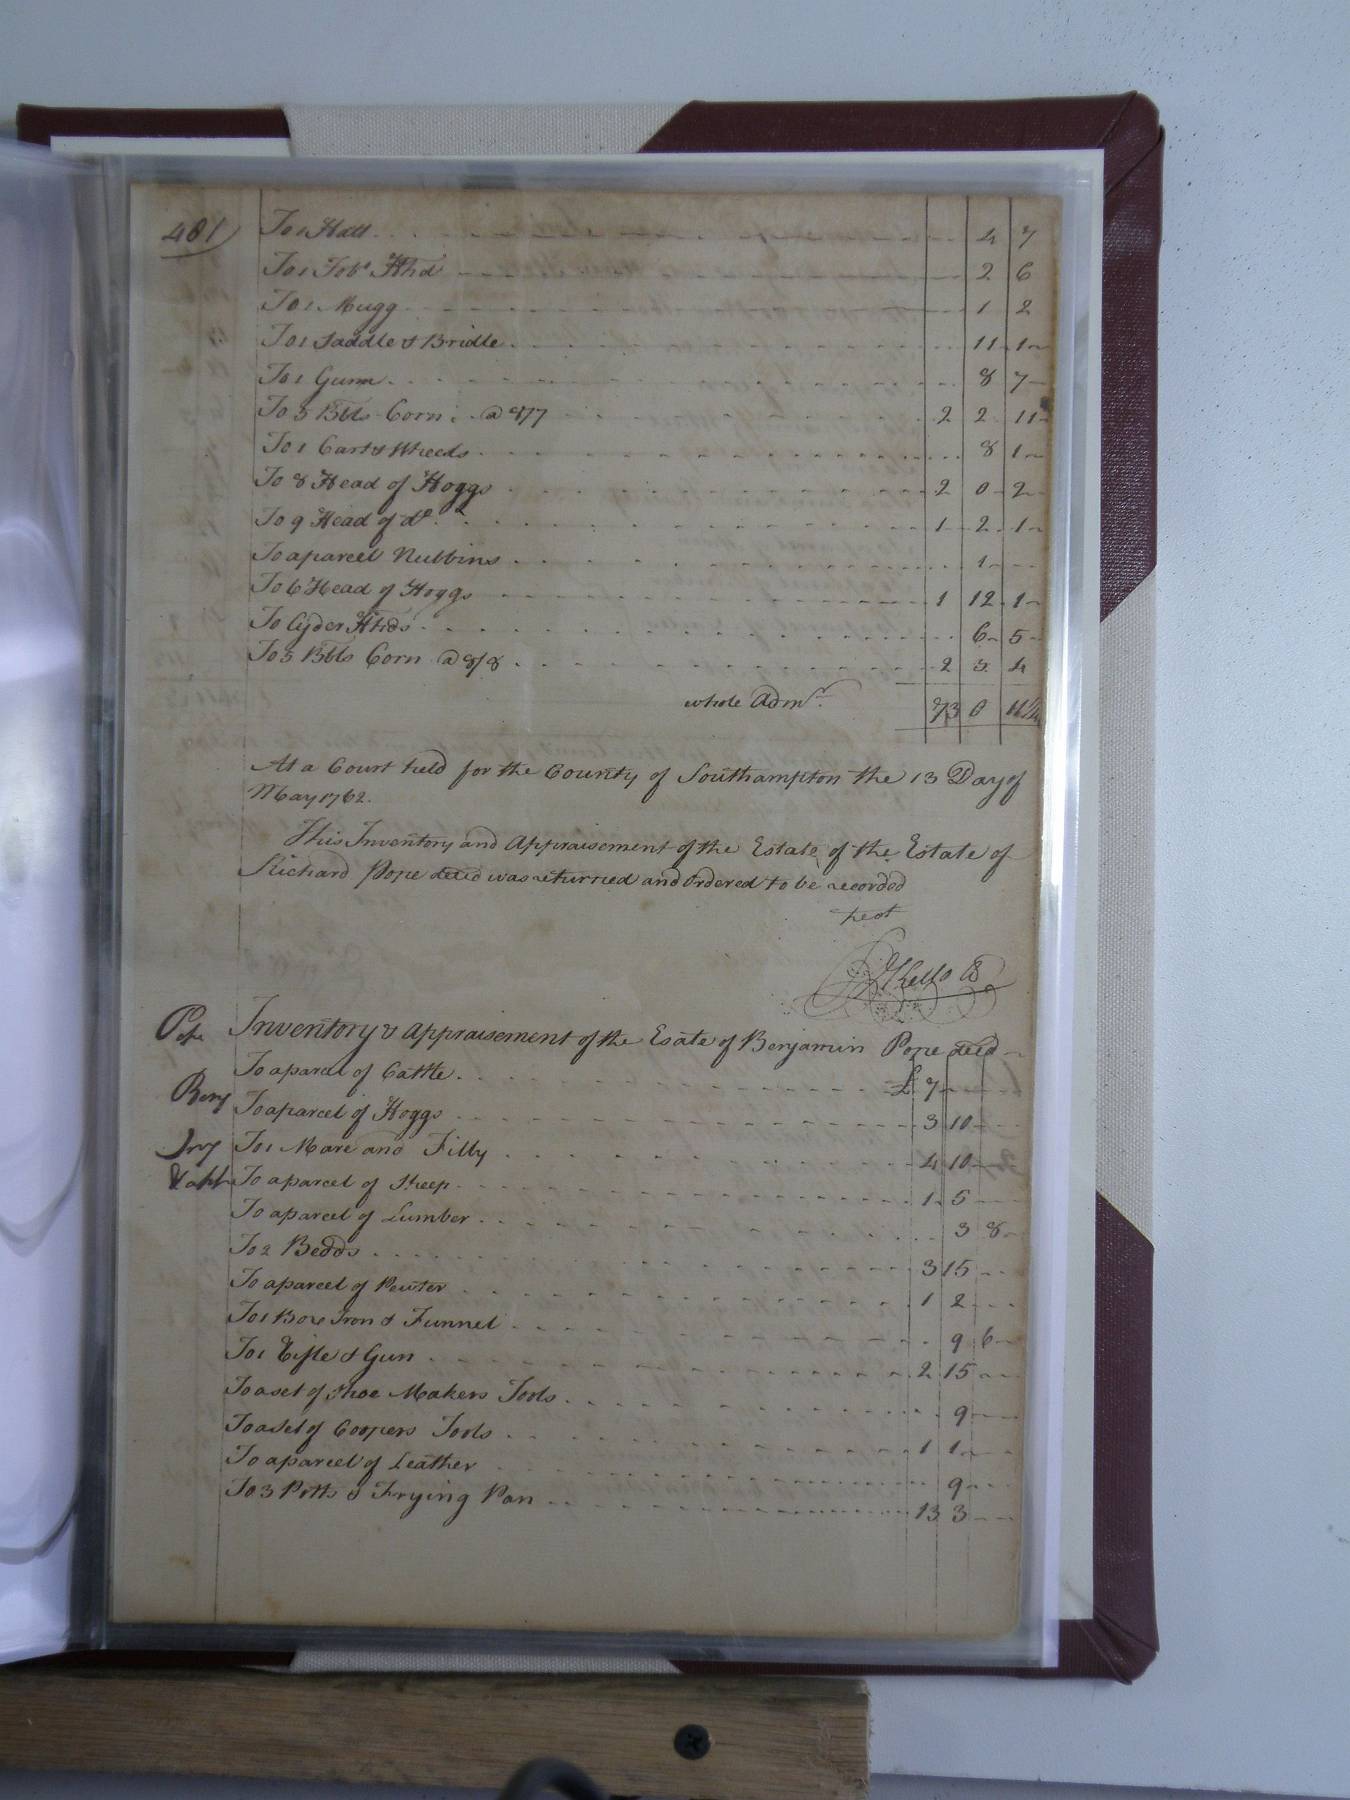 481
To 1 Hatt 4 7
To 1 Tobo Hhd 2 6
To 1 Mugg 1 2
To 1 Saddle & Bridle 11 1
To 1 Gunn 8 7
To 5 Bbls Corn @ 8/7 2 2 11
To 1 Cart & Wheels 8 1
To 8 Head of Hoggs 2 0 2
To 9 Head of do 1 2 1
To a parcel Nubbins 1
To 6 Head of Hoggs 1 12 1
To Cyder Hhds 6 5
To 5 Bbls Corn @ 8/8 2 3 4
whole Admr 73 0
At a Court held for the County of Southampton the 13 Day of
May 1762.
This Inventory and Appraisement of the Estate of the Estate of
Richard Pope decd was returned and ordered to be recorded
Test
Kello
Pope Inventory & Appraisement of the Esate of Benjamin Pope decd
To a parcel of Cattle £ 7
Benj
To a parcel of Hoggs 3 10
Inv To 1 Mare and Filly 4 10
To a parcel of Sheep 1 5
To a parcel of Lumber 3 8
To 2 Bedds 3 15
To a parcel of Pewter 1 2
To 1 Box Iron & Funnel 9 6
To 1 & Gun 2 15
To a set of Shoe Makers Tools 9
To a Set of Coopers Tools 1 1
To a parcel of Leather 9
To 3 Potts & Frying Pan 13 3